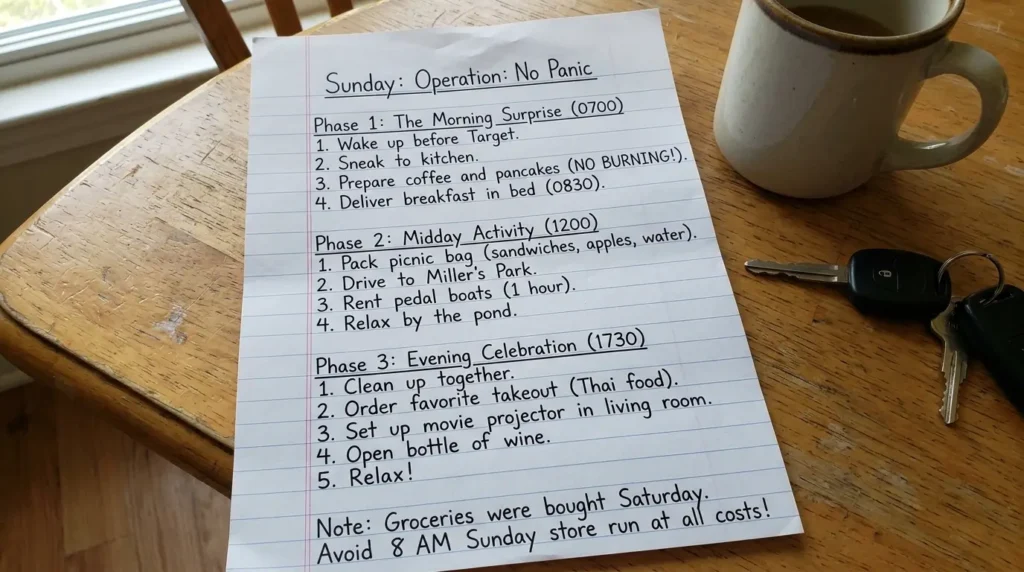 Sunday: Operation: No Panic
Phase 1: The Morning Surprise (0700)
1. Wake up before Target.
2. Sneak to kitchen.
3. Prepare coffee and pancakes (NO BURNING!).
4. Deliver breakfast in bed (0830).
Phase 2: Midday Activity (1200)
1. Pack picnic bag (sandwiches, apples, water).
2. Drive to Miller's Park.
3. Rent pedal boats (1 hour).
4. Relax by the pond.
Phase 3: Evening Celebration (1730)
1. Clean up together.
2. Order favorite takeout (Thai food).
3. Set up movie projector in living room.
4. Open bottle of wine.
5. Relax!
Note: Groceries were bought Saturday.
Avoid 8 AM Sunday store run at all costs!